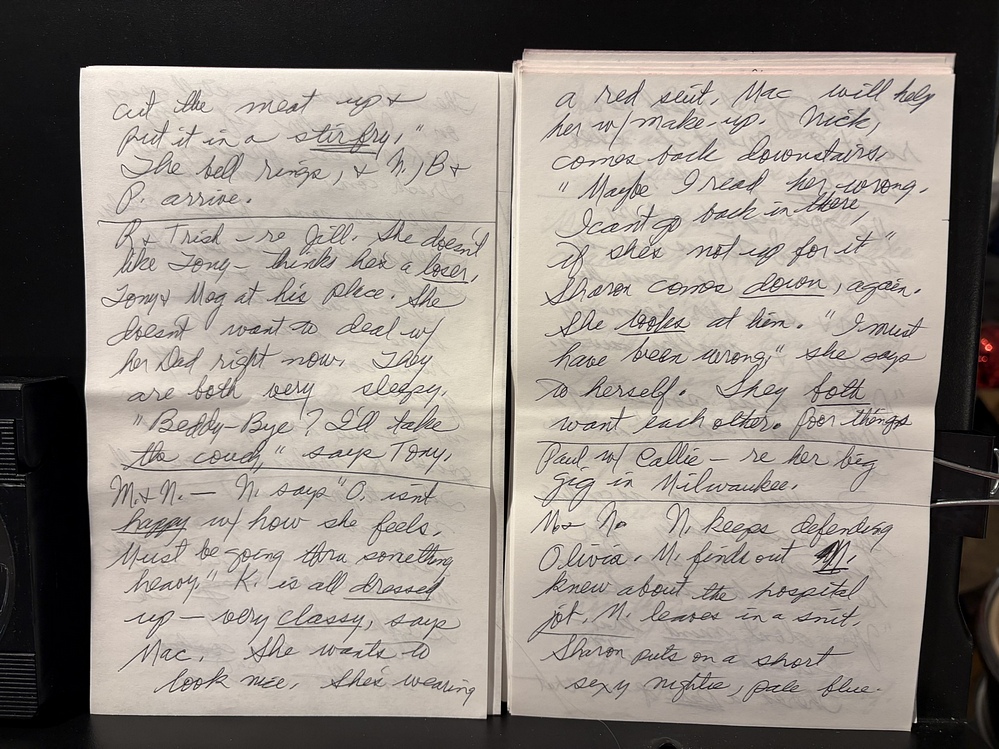 cut the meat up &
put it in a stir fry."
The bell rings, & N., B &
P. arrive.
R & Trish - re Jill. She doesn't
like Tony - thinks he's a loser.
Tony & Meg at his place. She
doesn't want to deal w/
her Dad right now. They
are both very sleepy.
"Beddy-Bye? I'll take
the couch," says Tony.
M. & N. — N. says "O. isn't
happy w/ how she feels.
Must be going thru something
heavy." K. is all dressed
up - very classy, says
Mac. She wants to
look nice. She's wearing
a red suit. Mac will help
her w/ make-up. Nick,
comes back downstairs.
"Maybe I read her wrong.
I can't go back in there,
if she's not up for it"
Sharon comes down, again.
She looks at him. "I must
have been wrong," she says
to herself. They both
want each other. Poor things
Paul w/ Callie - re her big
gig in Milwaukee.
N. keeps defending
Olivia. finds out N.
knew about the hospital
job. N. leaves in a snit.
Sharon puts on a short
sexy nightie, pale blue.